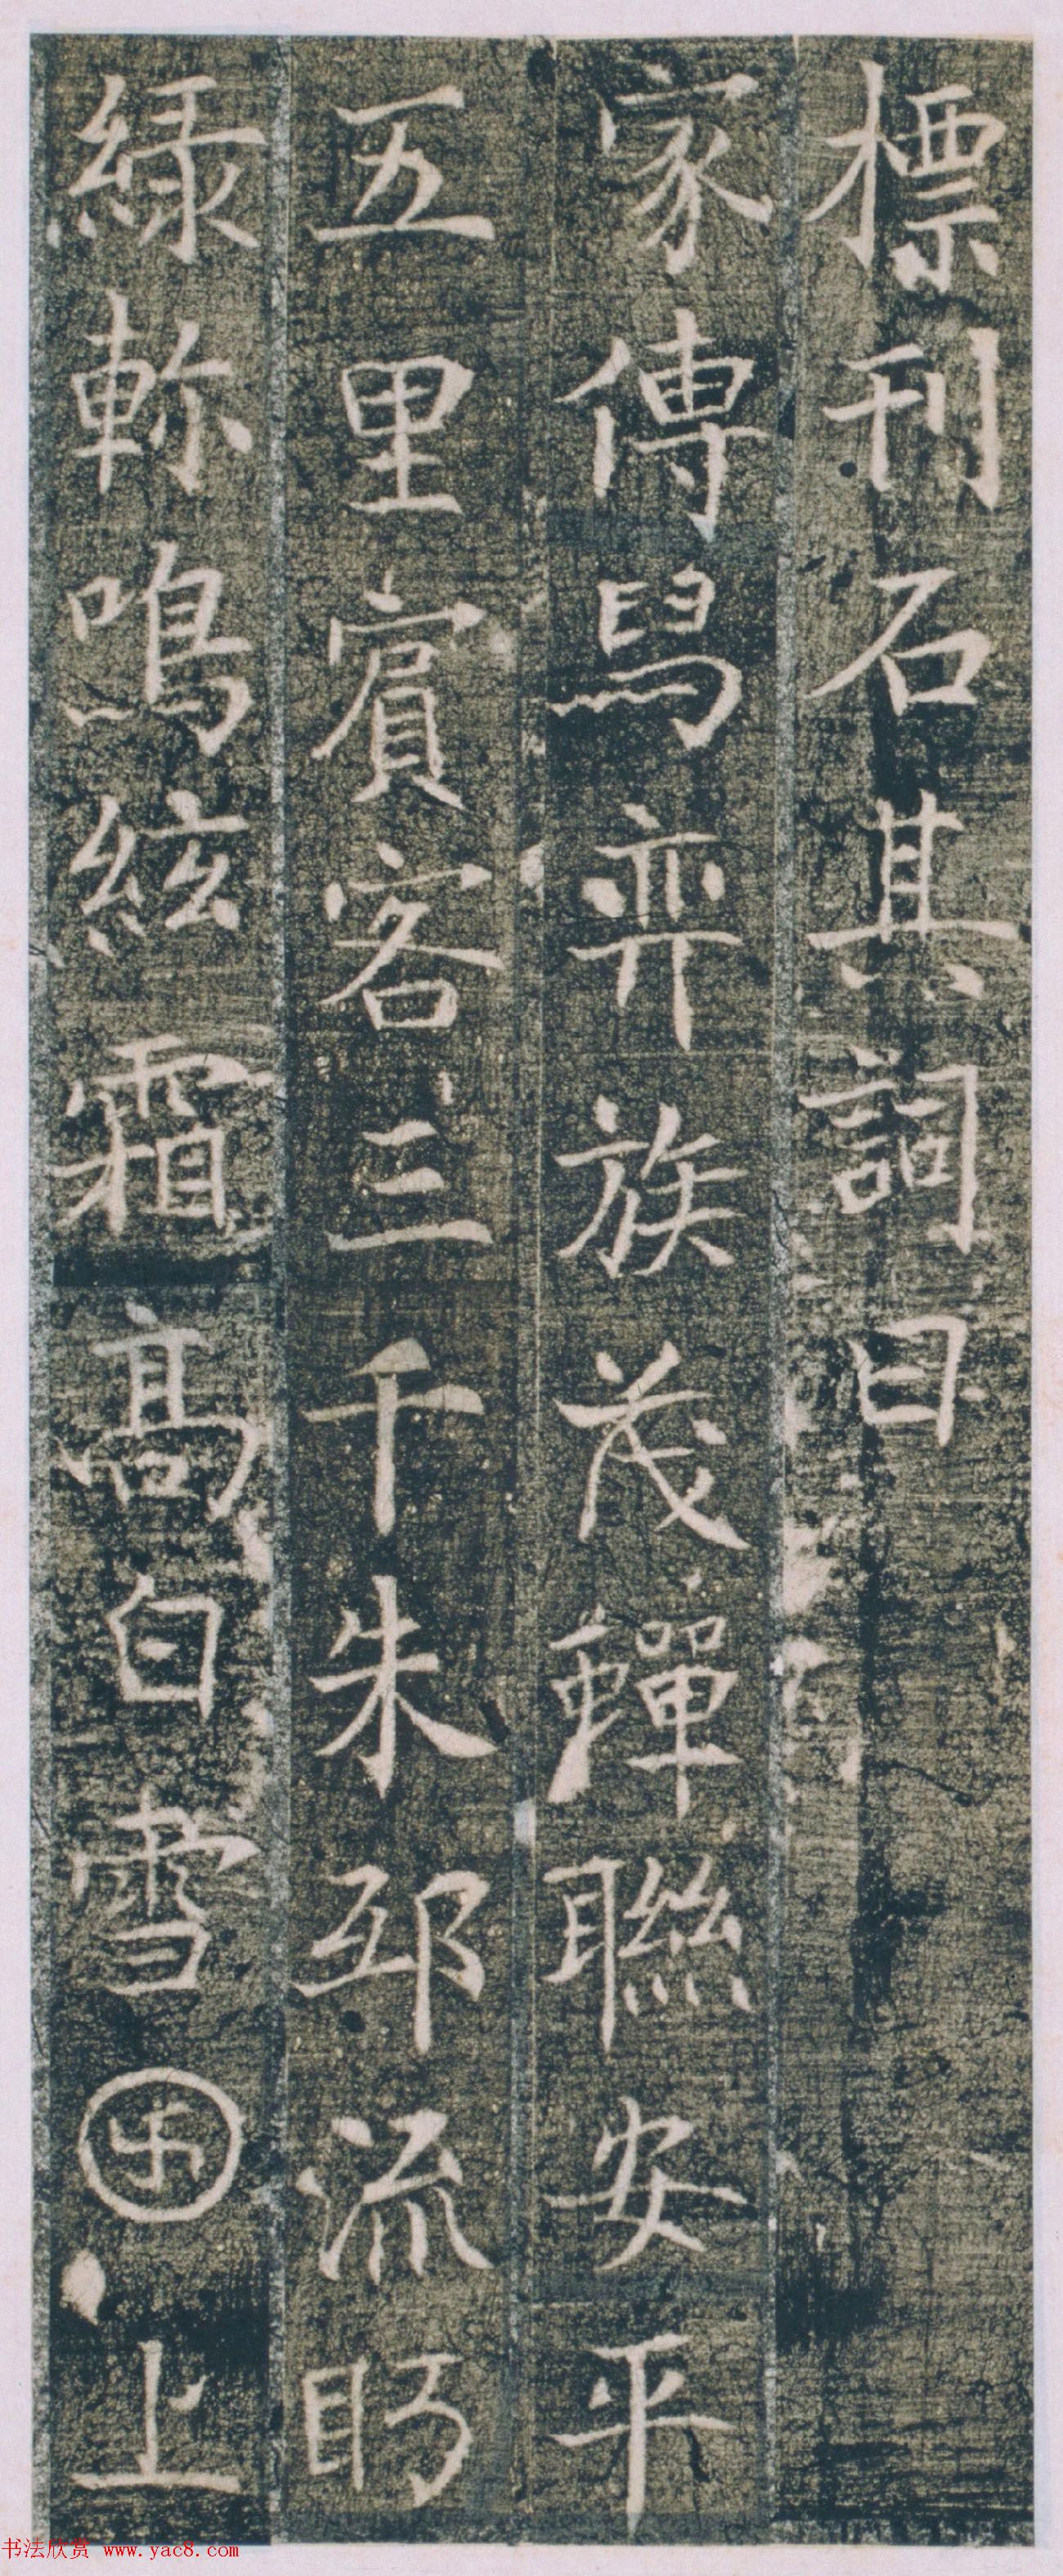 標刊石其詞曰
家傳舄弈族茂蟬聯安平
五里賓客三千朱邳流眄
綠軫鳴絃霜高白雪卍上
书法欣赏 www.yac8.com